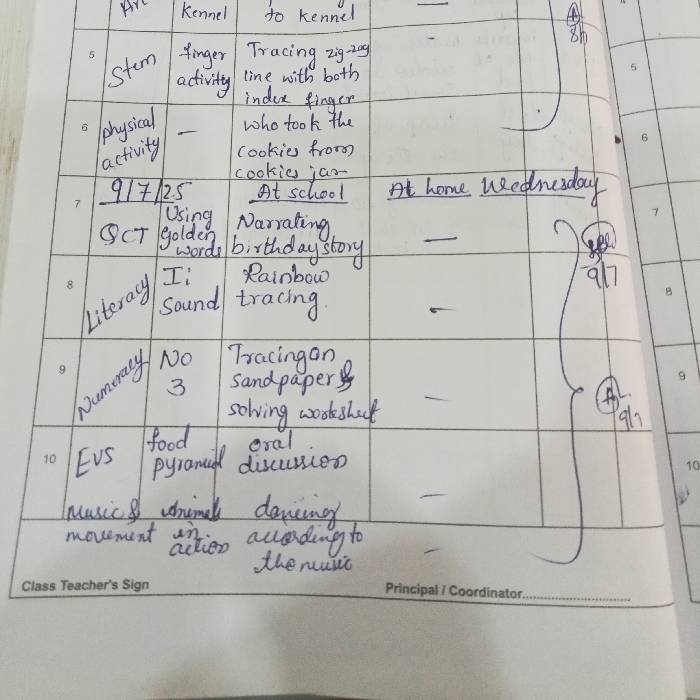 Kennel to kennel
8/7
5 Stem finger Tracing zig-zag
activity line with both
index finger
6 physical — who took the
activity cookies from
cookies jar
7 9/7/25 At school At home Wednesday
QCT Using Narrating —
golden birthday story
words
9/7
8 Literacy Ii Rainbow
Sound tracing. —
9 Numeracy No Tracing on
3 sandpaper &
solving worksheet —
9/7
10 EVS food oral
pyramid discussion —
Music & Animals dancing
movement in according to
action the music —
Class Teacher's Sign Principal / Coordinator
5
6
7
8
9
10